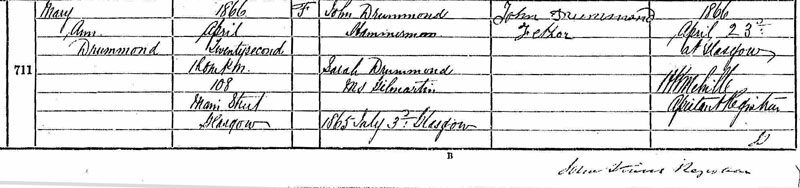 711
Mary
Ann
Drummond
1866
April
Twentysecond
108
Main Street
Glasgow
F
John Drummond
Hammerman
Sarah Drummond
MS Gilmartin
1865 July 3d. Glasgow
John Drummond
Father
1866
April 23d
at Glasgow
Melville
Assistant Registrar
B
John Registrar